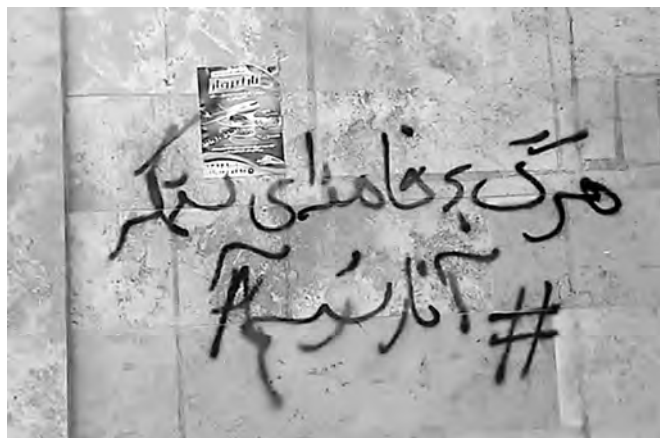 مرگ بر خامنه‌ای ستمگر
#آنارشیسم